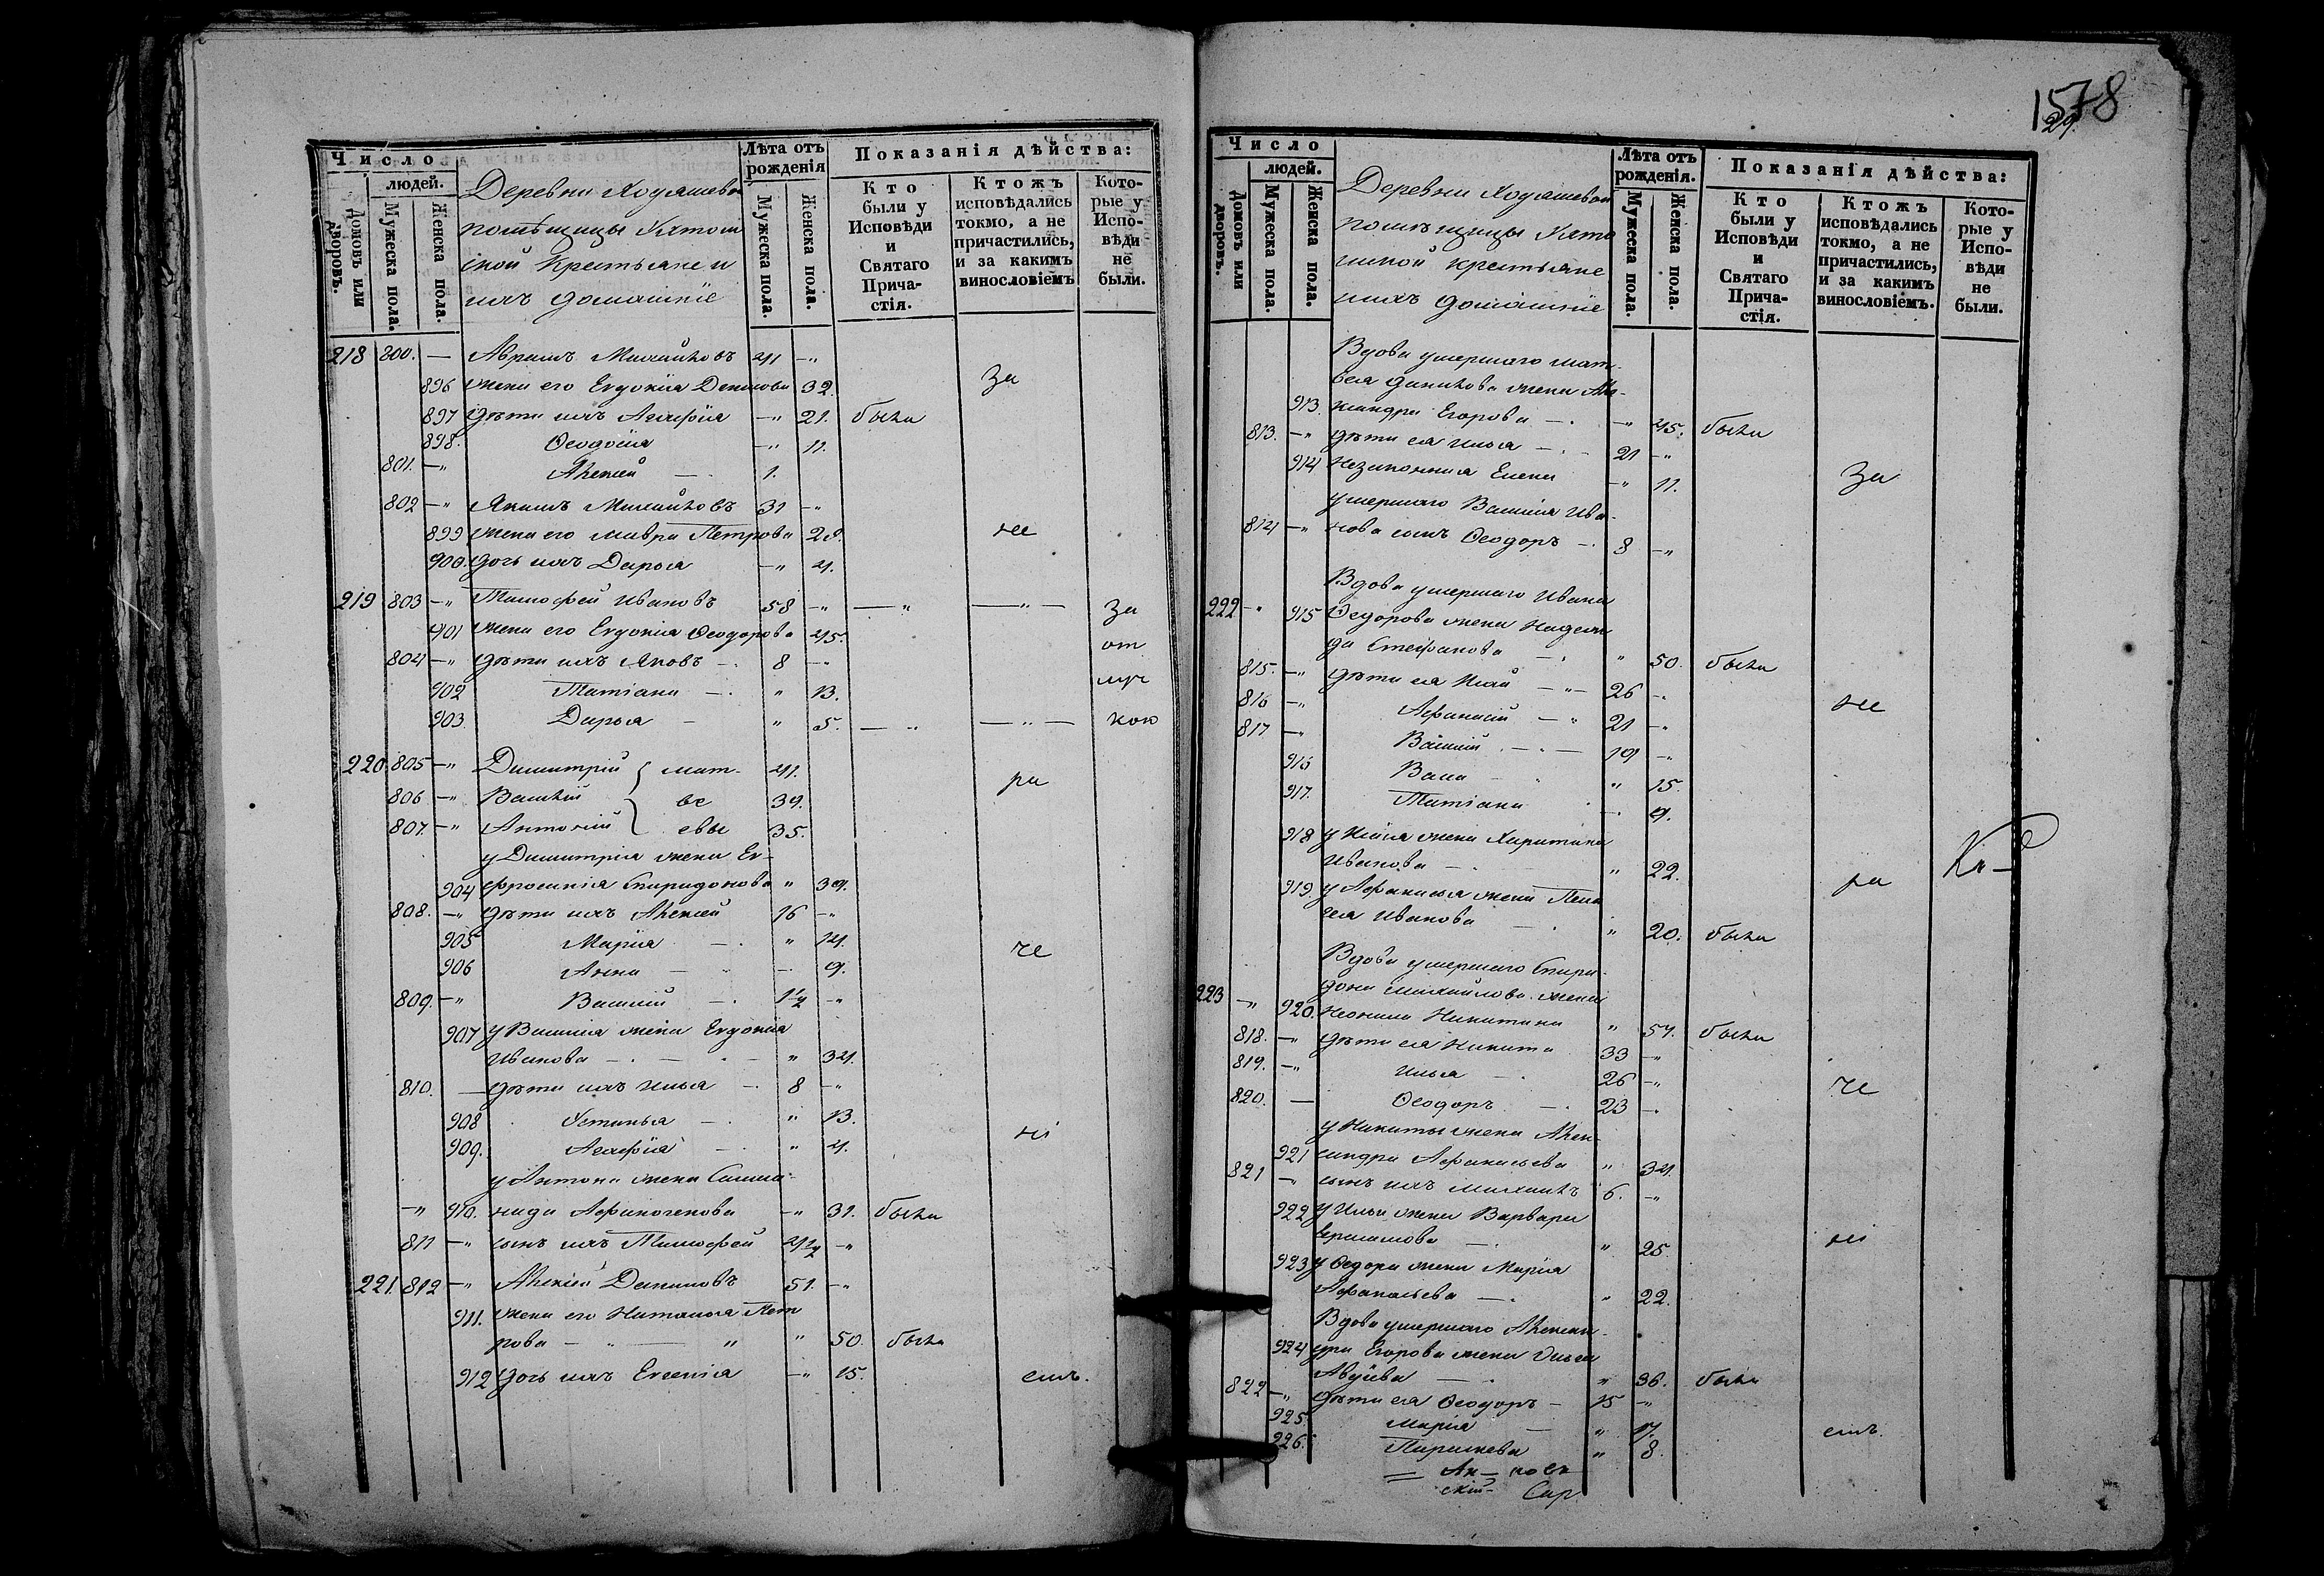 1578
29.
Число
людей.
Домовъ или дворовъ.
Мужеска пола.
Женска пола.
Деревни Ходяшевой
помѣщицы
крестьяне и
ихъ домашніе
Лѣта отъ рожденія
Мужеска пола.
Женска пола.
Показанія дѣйства:
Кто были у Исповѣди и Святаго Причастія.
Ктожъ исповѣдались токмо, а не причастились, и за какимъ винословіемъ
Которые у Исповѣди не были.
218 800. — Аврамъ Михайловъ 41 —"
896 жена его Евдокія Данилова 32. За
897 дѣти ихъ Агафія —" 21. были
898. Ѳеодосія —" 11.
801. —" Алексѣй — 1.
802 —" Якимъ Михайловъ 31 —"
899 жена его Мавра Петрова 28. не
900. дочь ихъ Дарья —" 4.
219 803 —" Тимофей Ивановъ 58 —" —" —"— За
901 жена его Евдокія Ѳеодорова 45. от
804 —" дѣти ихъ Яковъ —. 8 —" луч
902 Татіана —. " 13.
903. Дарья — " 5. —" —"— кою
220. 805 —" Димитрій } мат- 41. ра
806 —" Василій } ве 39.
807. —" Антоній } евы 35.
у Димитрія жена Ев-
904 фросинія Спиридонова " 39.
808. —" дѣти ихъ Алексѣй 16 —"
905 Марія —. " 14. че
906 Анна — — 9.
809. —" Василій —. 1½ —"
907 у Василія жена Евдокія
Иванова —. — " 34.
810. — дѣти ихъ Илья —. 8 —"
908 Устинья —. " 13.
909. Агафія —. " 4. ні
у Антона жена Соломо-
—" 910. нида Афиногенова —" 31. были
811 —" сынъ ихъ Тимофей 4½ —"
221. 812 —" Алексѣй Даниловъ 51. —"
911. жена его Наталья Пет
рова — " — " " 50. были
912 дочь ихъ Евгенія —" 15. емъ.
Число
людей.
Домовъ или дворовъ.
Мужеска пола.
Женска пола.
Деревни Ходяшевой
помѣщицы
крестьяне
ихъ домашніе
Лѣта отъ рожденія.
Мужеска пола.
Женска пола.
Показанія дѣйства:
Кто были у Исповѣди и Святаго Причастія.
Ктожъ исповѣдались токмо, а не причастились, и за какимъ винословіемъ.
Которые у Исповѣди не были.
Вдова умершаго Мат-
вея Данилова жена Але-
913. ксандра Егорова —. —" 45. были
813. —" дѣти ея Илья —. 21 —"
914 незаконная Елена —" 11. За
умершаго Василія Ива-
814 —" нова сынъ Ѳеодоръ —. 8 —"
Вдова умершаго Ивана
222 —" 915 Ѳедорова жена Надеж
да Стефанова —. " 50. были
815. —" дѣти ея — 26 —"
816 —" Афанасій — " 21 —" не
817 —" Василій —. — 19 —"
916 Васса — " 15.
917. Татіана — 9.
918 у жена Харитина
Иванова —. " 22. ра
919 у Афанасья жена Пела
гея Иванова — " 20. были
Вдова умершаго Спири-
дона Михайлова жена
223 —" 920. Неонила Никитина " 57. были
818. —" дѣти ея Никита 33 —"
819. —" Илья —. 26 —"
820. — Ѳеодоръ —. 23 —. че
у Никиты жена Алек-
921 сандра Афанасьева " 34.
821 —" сынъ ихъ Михаилъ 6. —"
922 у Ильи жена Варвара
Герасимова —. " 25. ні
923 у Ѳедора жена Марія
Афанасьева —. " 22.
Вдова умершаго Алексан-
924 дра Егорова жена Ольга
Авдѣева —. " 36. были
822 —" дѣти ея Ѳеодоръ — 15 —"
925. Марія — " 17. емъ.
926. Парасковья " 8.